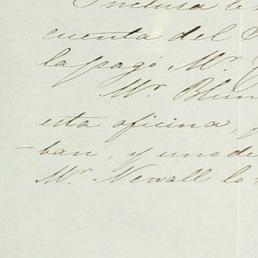 Inclusa le
cuenta del
la pagó Mr.
Mr. Blun
esta oficina, y
ban, y uno de
Mr. Newall lo